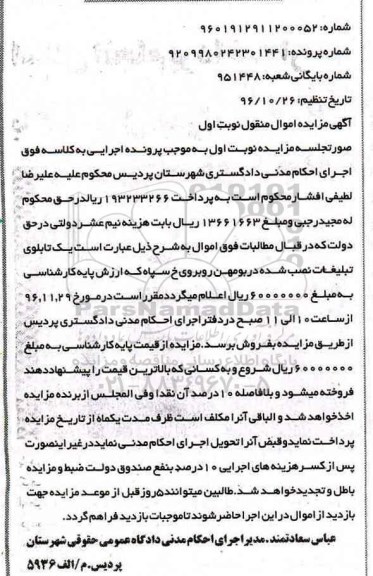 شماره: ۹۶۰۱۹۱۲۹۱۱۲۰۰۰۵۲
شماره پرونده: ۹۲۰۹۹۸۰۲۴۲۳۰۱۴۴۱
شماره بایگانی شعبه: ۹۵۱۴۴۸
تاریخ تنظیم: ۹۶/۱۰/۲۶
آگهی مزایده اموال منقول نوبت اول
صورتجلسه مزایده نوبت اول به موجب پرونده اجرایی به کلاسه فوق
اجرای احکام مدنی دادگستری شهرستان پردیس محکوم علیه علیرضا
لطیفی افشار محکوم است به پرداخت ۱۹۳۲۳۳۲۶۶ ریال در حق محکوم
له مجید رجبی و مبلغ ۱۳۶۶۱۶۶۳ ریال بابت هزینه نیم عشر دولتی در حق
دولت که در قبال مطالبات فوق اموال به شرح ذیل عبارت است یک تابلوی
تبلیغات نصب شده در بومهن روبروی خ سپاه که ارزش پایه کارشناسی
به مبلغ ۶۰۰۰۰۰۰۰ ریال اعلام میگردد مقرر است در مورخ ۹۶,۱۱,۲۹
از ساعت ۱۰ الی ۱۱ صبح در دفتر اجرای احکام مدنی دادگستری پردیس
از طریق مزایده بفروش برسد. مزایده از قیمت پایه کارشناسی به مبلغ
۶۰۰۰۰۰۰۰ ریال شروع و به کسانی که بالاترین قیمت را پیشنهاد دهند
فروخته میشود و بلافاصله ۱۰ درصد آن نقدا وفی المجلس از برنده مزایده
اخذ خواهد شد و الباقی آنرا مکلف است ظرف مدت یکماه از تاریخ مزایده
پرداخت نماید و قبض آنرا تحویل اجرای احکام مدنی نماید در غیر اینصورت
پس از کسر هزینه های اجرایی ۱۰ درصد بنفع صندوق دولت ضبط و مزایده
باطل و تجدید خواهد شد. طالبین میتوانند ۵ روز قبل از موعد مزایده جهت
بازدید از اموال در این اجرا حاضر شوند تا موجبات بازدید فراهم گردد.
عباس سعادتمند. مدیر اجرای احکام مدنی دادگاه عمومی حقوقی شهرستان
پردیس. م/الف ۵۹۳۶
ParsNamadData
پایگاه اطلاع رسانی مناقصه و مزایده
۰۲۱-۸۸۳۴۹۶۷۰-۵